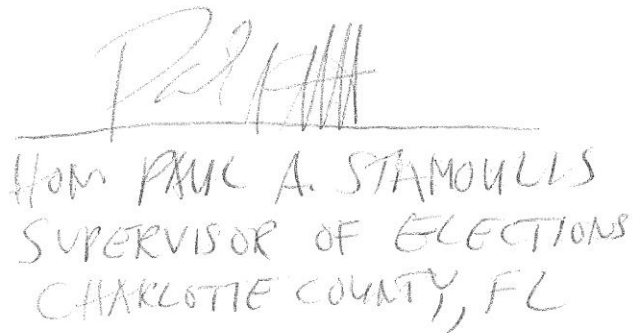 Hon PAUL A. STAMOULIS
SUPERVISOR OF ELECTIONS
CHARLOTTE COUNTY, FL